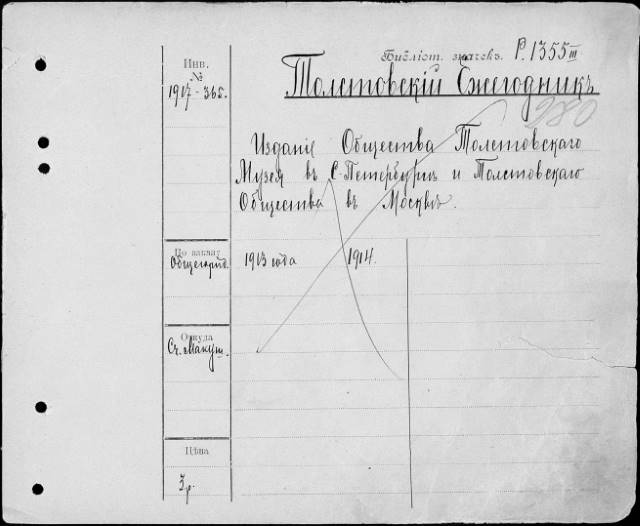 Библіот. значекъ. P. 1355 III
Инв.
№
1917-365.
Толстовскій Ежегодникъ
280
Изданіе Общества Толстовскаго
Музея въ С.-Петербургѣ и Толстовскаго
Общества въ Москвѣ.
По каталу
1913 года 1914.
Откуда
Сч.
Цѣна
3 р.